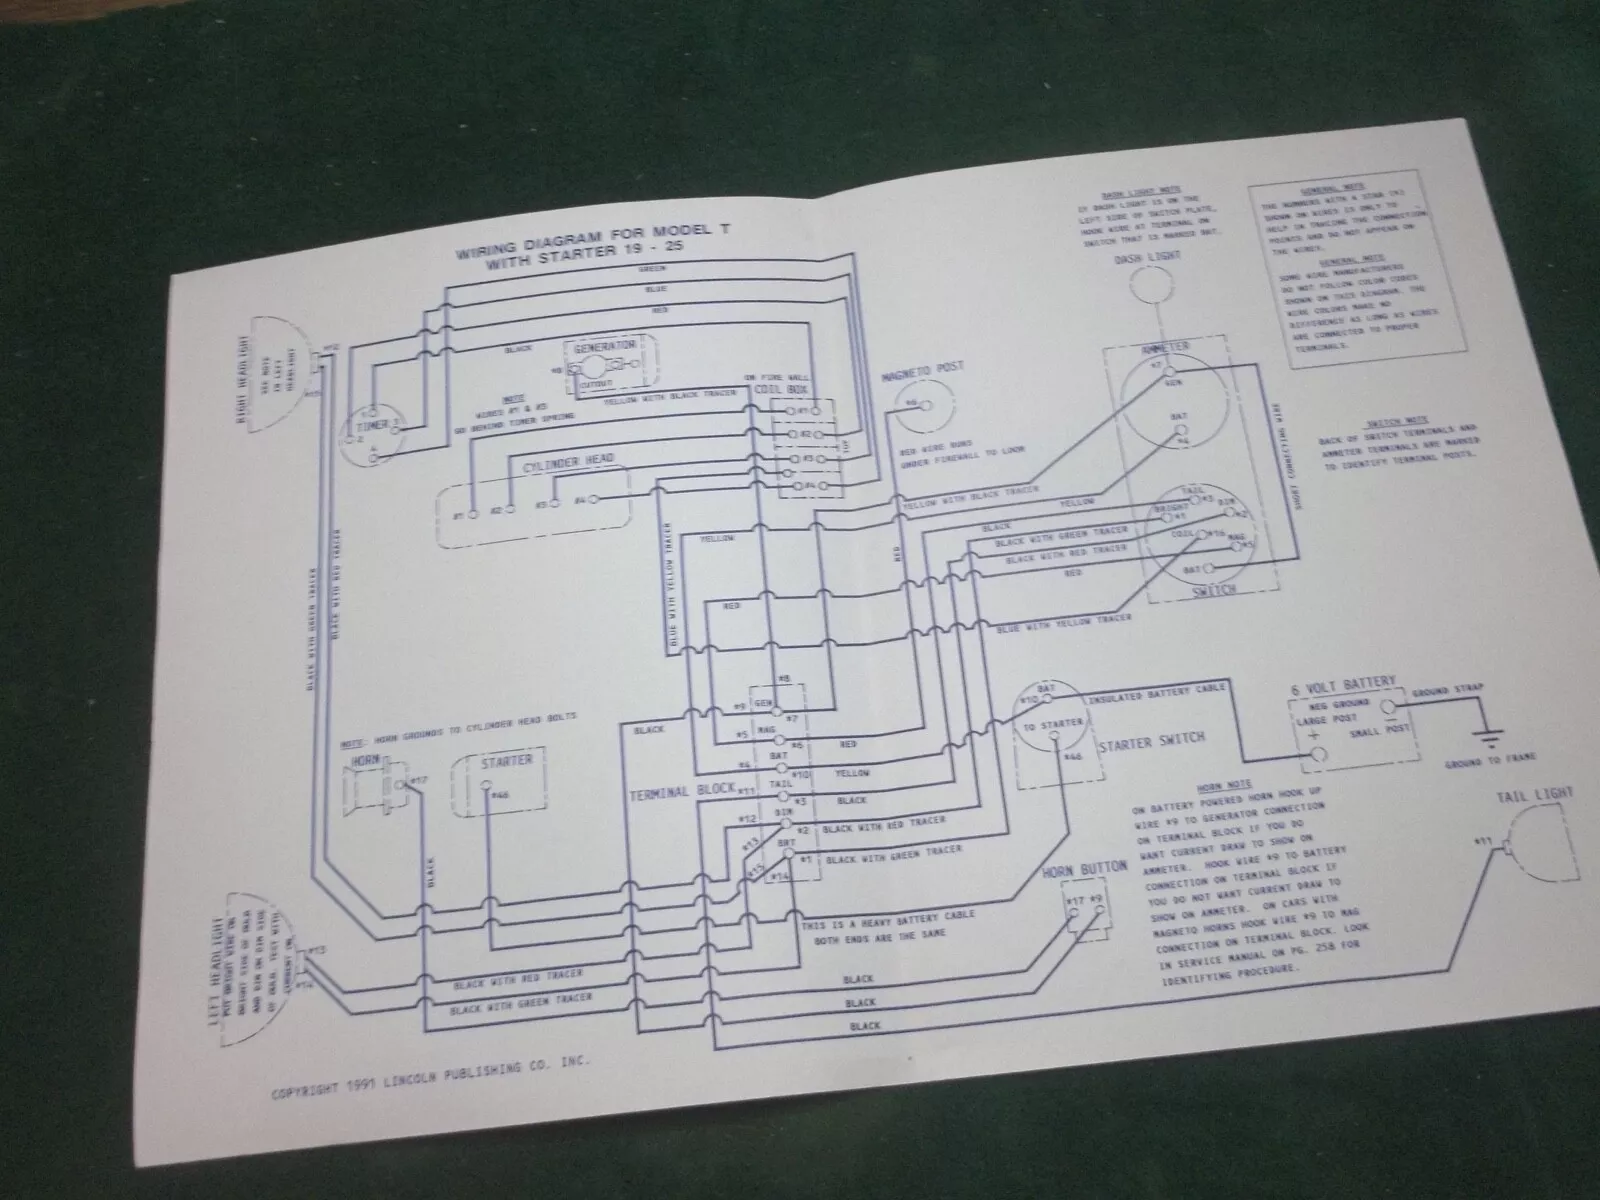 WIRING DIAGRAM FOR MODEL T
WITH STARTER 19 - 25
GREEN
BLUE
RED
BLACK
DASH LIGHT NOTE
IF DASH LIGHT IS ON THE
LEFT SIDE OF SWITCH PLATE,
HOOK WIRE AT TERMINAL ON
SWITCH THAT IS MARKED BAT.
DASH LIGHT
GENERAL NOTE
THE NUMBERS WITH A STAR (*)
SHOWN ON WIRES IS ONLY TO
HELP IN TRACING THE CONNECTION
POINTS AND DO NOT APPEAR ON
THE WIRES.
GENERAL NOTE
SOME WIRE MANUFACTURERS
DO NOT FOLLOW COLOR CODES
SHOWN ON THIS DIAGRAM. THE
WIRE COLORS MAKE NO
DIFFERENCE AS LONG AS WIRES
ARE CONNECTED TO PROPER
TERMINALS.
SWITCH NOTE
BACK OF SWITCH TERMINALS AND
AMMETER TERMINALS ARE MARKED
TO IDENTIFY TERMINAL POSTS.
RIGHT HEADLIGHT
SEE NOTE
IN LEFT
HEADLIGHT
GENERATOR
CUTOUT
YELLOW WITH BLACK TRACER
ON FIRE WALL
COIL BOX
#1
#2
#3
#4
TOP
NOTE
WIRES #1 & #3
GO BEHIND TIMER SPRING
TIMER
1
2
3
4
CYLINDER HEAD
#1
#2
#3
#4
MAGNETO POST
*6
RED WIRE RUNS
UNDER FIREWALL TO LOOM
AMMETER
*7
GEN
BAT
*4
SHORT CONNECTING WIRE
YELLOW WITH BLACK TRACER
YELLOW
BLACK
BLACK WITH GREEN TRACER
BLACK WITH RED TRACER
RED
BLUE WITH YELLOW TRACER
TAIL
*3
DIM
*2
BRIGHT
*1
COIL
*16
MAG
*5
BAT
SWITCH
YELLOW
RED
RED
BLUE WITH YELLOW TRACER
BLACK WITH GREEN TRACER
BLACK WITH RED TRACER
NOTE: HORN GROUNDS TO CYLINDER HEAD BOLTS
HORN
*17
STARTER
*46
BLACK
BLACK
TERMINAL BLOCK
*8
*9
GEN
*7
*5
MAG
*6
RED
*4
BAT
*10
YELLOW
*11
TAIL
*3
BLACK
*12
DIM
*2
BLACK WITH RED TRACER
*13
BRT
*1
BLACK WITH GREEN TRACER
*15
*14
BAT
*10
TO STARTER
*46
STARTER SWITCH
INSULATED BATTERY CABLE
6 VOLT BATTERY
NEG GROUND
LARGE POST
+
SMALL POST
-
GROUND STRAP
GROUND TO FRAME
TAIL LIGHT
*11
HORN BUTTON
*17 *9
HORN NOTE
ON BATTERY POWERED HORN HOOK UP
WIRE *9 TO GENERATOR CONNECTION
ON TERMINAL BLOCK IF YOU DO
WANT CURRENT DRAW TO SHOW ON
AMMETER. HOOK WIRE *9 TO BATTERY
CONNECTION ON TERMINAL BLOCK IF
YOU DO NOT WANT CURRENT DRAW TO
SHOW ON AMMETER. ON CARS WITH
MAGNETO HORNS HOOK WIRE *9 TO MAG
CONNECTION ON TERMINAL BLOCK. LOOK
IN SERVICE MANUAL ON PG. 258 FOR
IDENTIFYING PROCEDURE.
THIS IS A HEAVY BATTERY CABLE
BOTH ENDS ARE THE SAME
LEFT HEADLIGHT
PUT BRIGHT WIRE ON
BRIGHT SIDE OF
AND DIM ON DIM SIDE
TEST WITH
CURRENT ON.
*13
*14
BLACK WITH RED TRACER
BLACK WITH GREEN TRACER
BLACK
BLACK
BLACK
COPYRIGHT 1991 LINCOLN PUBLISHING CO. INC.